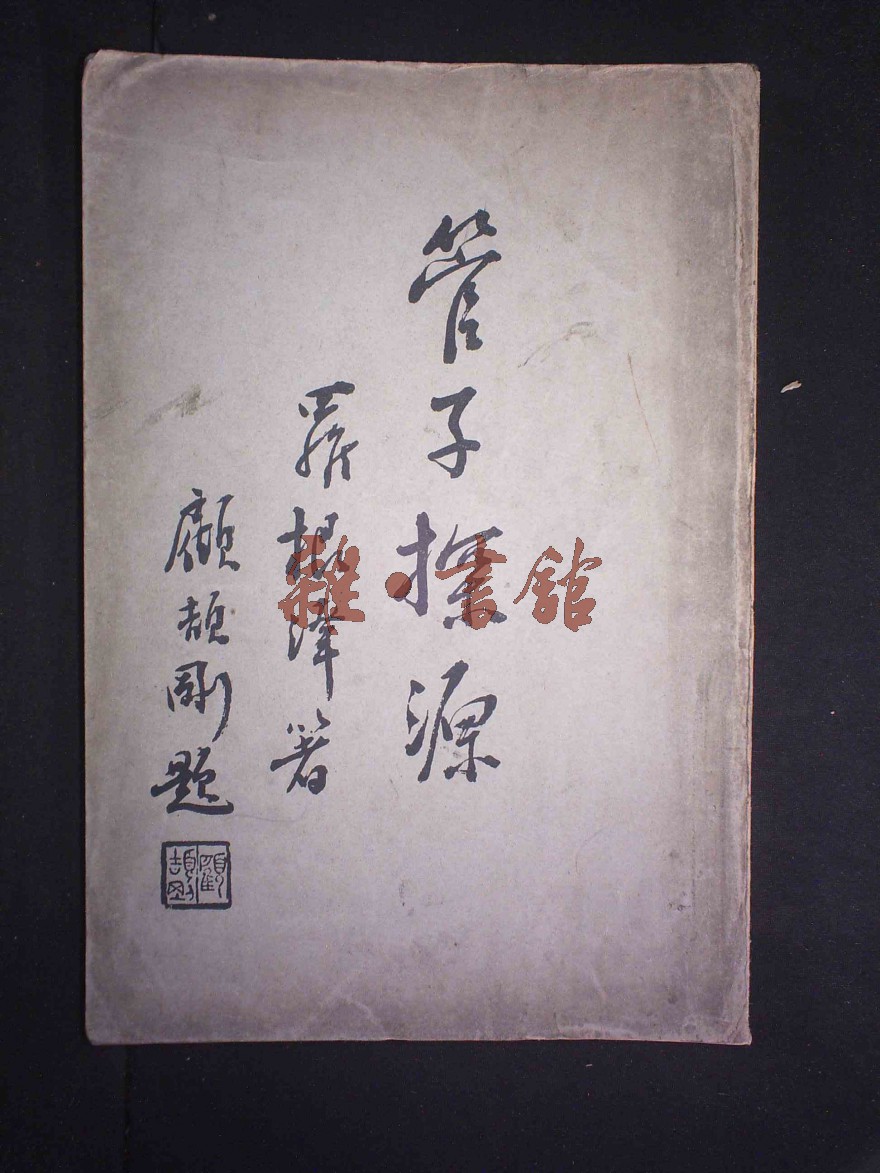 管子探源
羅根澤著
顧頡剛題
顧頡剛
雜·書館